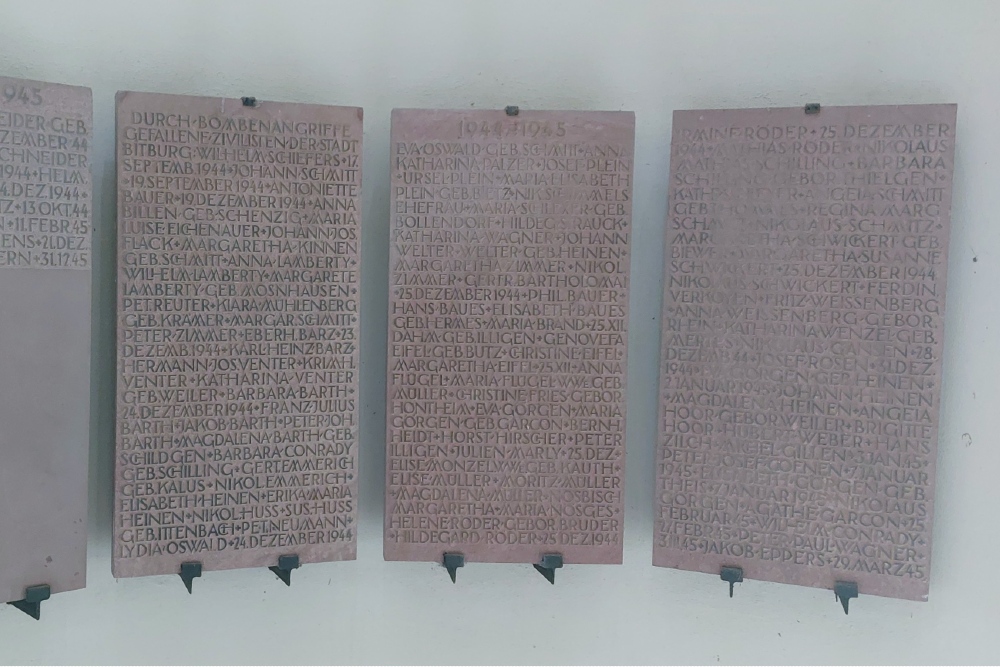 945
EIDER·GEB
ZEMBER·44
CHNEIDER
1944·HELM
4.DEZ1944·
TZ·13OKT44
N·11.FEBR.45
ENS·21.DEZ.
ERN·31.1.45
DURCH·BOMBENANGRIFFE
GEFALLENE·ZIVILISTEN·DER·STADT
BITBURG·WILHELM·SCHIEFERS·17.
SEPTEMB.1944·JOHANN·SCHMITT
·19.SEPTEMBER·1944·ANTONIETTE
BAUER·19.DEZEMBER·1944·ANNA
BILLEN·GEB·SCHENZIG·MARIA
LUISE·EICHENAUER·JOHANN·JOS
FLACK·MARGARETHA·KINNEN
GEB.SCHMITT·ANNA·LAMBERTY·
WILHELM·LAMBERTY·MARGARETE
LAMBERTY·GEB.MOSNHAUSEN·
PET.REUTER·KLARA·MÜHLENBERG
GEB.KRÄMER·MARGAR.SCHMITT
PETER·ZIMMER·EBERH.BARZ·23.
DEZEMB.1944·KARL·HEINZ·BARZ·
HERMANN·JOS.VENTER·KRIMH.
VENTER·KATHARINA·VENTER
GEB.WEILER·BARBARA·BARTH·
24.DEZEMBER1944·FRANZ·JULIUS
BARTH·JAKOB·BARTH·PETER·JOH
BARTH·MAGDALENA·BARTH·GEB.
SCHILDGEN·BARBARA·CONRADY
GEB.SCHILLING·GERT.EMMERICH
GEB.KALUS·NIKOL.EMMERICH
ELISABETH·HEINEN·ERIKA·MARIA
HEINEN·NIKOL·HUSS·SUS.HUSS
GEB.ITTENBACH·PET.NEUMANN·
LYDIA·OSWALD·24.DEZEMBER·1944
1944·1945
EVA·OSWALD·GEB.SCHMITT·ANN.
KATHARINA·PALZER·JOSEF·PLEIN
·URSEL·PLEIN·MARIA·ELISABETH
PLEIN·GEB.BUTZ·
EHEFRAU·MARIA· GEB.
HILDEG.RAUCK·
KATHARINA·WAGNER·JOHANN
WELTER·WELTER·GEB.HEINEN·
MARGARETHA·ZIMMER·NIKOL
ZIMMER·GERTR.BARTHOLOMAI
·25.DEZEMBER1944·PHIL.BAUER·
HANS·BAUES·ELISABETH·BAUES
GEB.HERMES·MARIA·BRAND·25.XII.
DAHM·GEB.ILLIGEN·GENOVEFA
EIFEL·GEB.BUTZ·CHRISTINE·EIFFEL·
MARGARETHA·EIFEL·25.XII·ANNA
FLÜGEL·MARIA·FLÜGEL·WWE.GEB.
MÜLLER·CHRISTINE·FRIES·GEBOR
HONTHEIM·EVA·GORGEN·MARIA
GORGEN·GEB·GARCON·BERNH
HEIDT·HORST·HIRSCHER·PETER
ILLIGEN·JULIEN·MARLY·25.DEZ·
ELISE·MONZEL·WWE.GEB.KAUTH·
ELISE·MÜLLER·MORITZ·MÜLLER
·MAGDALENA·MÜLLER·NOSBISCH
MARGARETHA·MARIA·NOSGES·
HELENE·RÖDER·GEBOR·BRUDER
·HILDEGARD·RÖDER·25.DEZ.1944·
RMINE·RÖDER·25.DEZEMBER
MATTHIAS·RÖDER·NIKOLAUS
SCHILLING·BARBARA
THIELGEN·
SCHMITT
REGINA·MARG.
NIKOLAUS·SCHMITZ·
SCHWICKERT·GEB.
MARGARETHA·SUSANNE
25.DEZEMBER·1944
SCHWICKERT·FERDIN.
VERKOYEN·FRITZ·WEISSENBERG
·ANNA·WEISSENBERG·GEBOR.
KATHARINA·WENZEL·GEB.
28.
DEZEMB.44·JOSEF·RÖSER·31.DEZ.
1944· GEB.HEINEN·
2.JANUAR·1945·JOHANN·HEINEN
·MAGDALENA·HEINEN·ANGELA
HOOR·GEBOR.WEILER·BRIGITTE
HOOR· WEBER·HANS
ZILCH· 5.JAN.45·
PETER·JOSEF·COENEN·7.JANUAR
1945· GEB.
NIKOLAUS
GÖRGEN·AGATHE·GARCON·25.
FEBRUAR·45· CONRADY·
27.FEBR.45· PAUL·WAGNER·
3.III.45·JAKOB·EPPERS·29.MÄRZ·45.